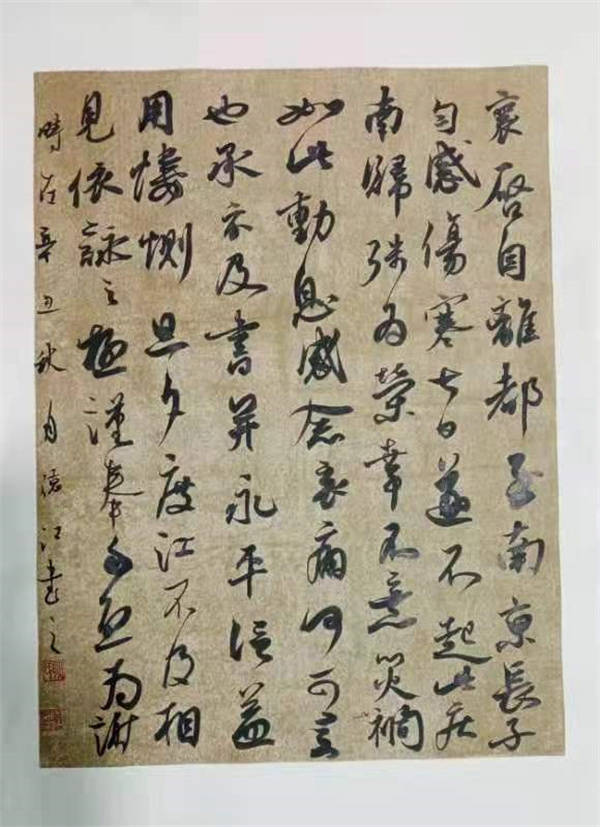 襄啓自離都至南京長子
匀感傷寒七日遂不起此疾
南歸殊為榮幸不意災禍
如此動息感念哀痛何可言
也承示及書并永平信益
用悽惻旦夕度江不及相
見依詠之極謹奉手啓為謝
時在辛丑秋月江書之